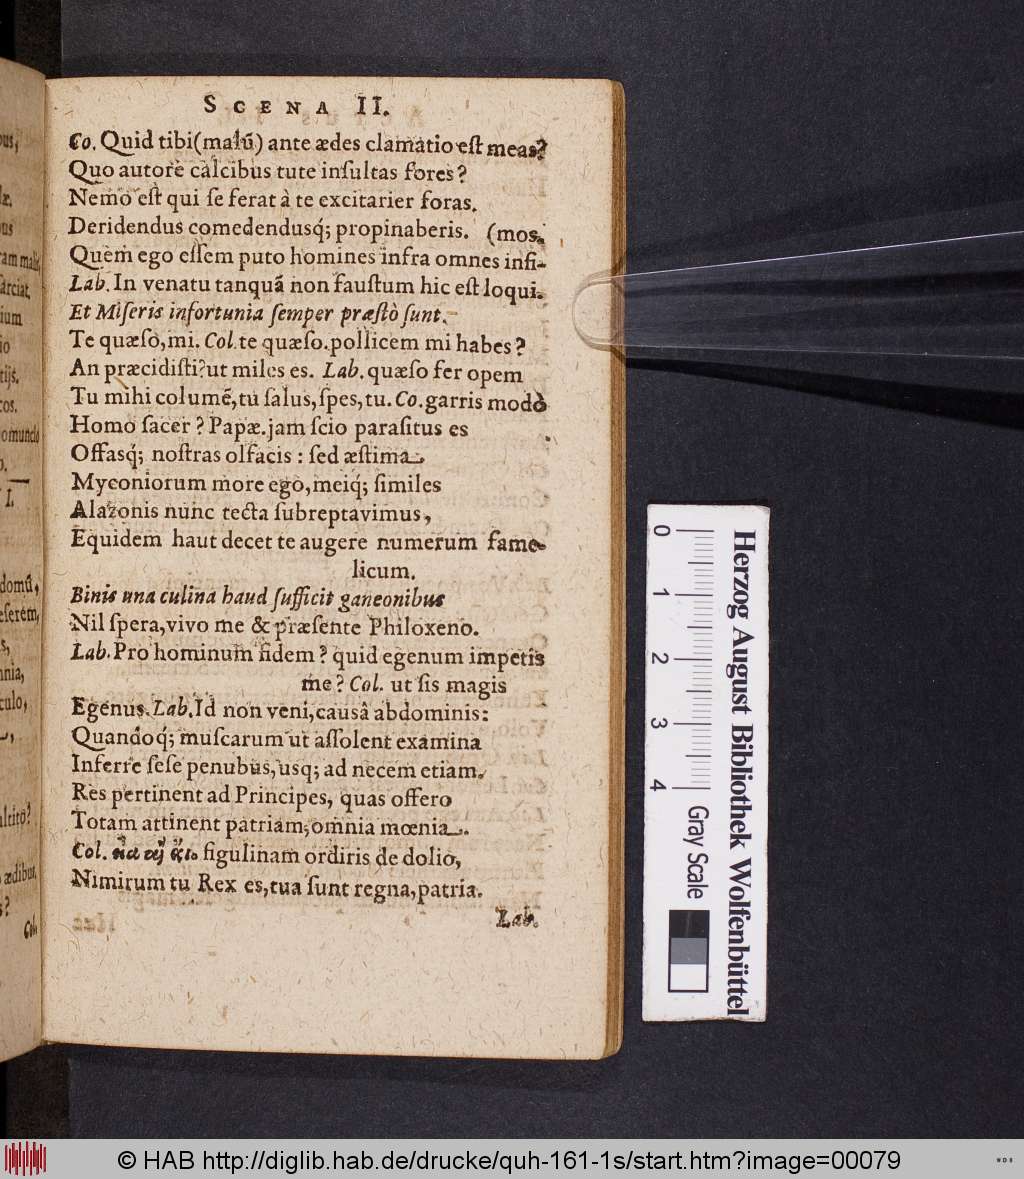 SCENA II.
Co. Quid tibi (malū) ante ædes clamatio eſt meas?
Quo autore calcibus tute inſultas fores?
Nemo eſt qui ſe ferat à te excitarier foras.
Deridendus comedendusq́; propinaberis. (mos.
Quem ego eſſem puto homines infra omnes infi-
Lab. In venatu tanquā non fauſtum hic eſt loqui.
Et Miſeris infortunia ſemper præſtò ſunt.
Te quæſo, mi. Col. te quæſo. pollicem mi habes?
An præcidiſti? ut miles es. Lab. quæſo fer opem
Tu mihi columē, tu ſalus, ſpes, tu. Co. garris modò
Homo ſacer? Papæ. jam ſcio paraſitus es
Offasq́; noſtras olfacis: ſed æſtima
Myconiorum more ego, meiq́; ſimiles
Alazonis nunc tecta ſubreptavimus,
Equidem haut decet te augere numerum fame-
licum.
Binis una culina haud ſufficit ganeonibus
Nil ſpera, vivo me & præſente Philoxeno.
Lab. Pro hominum fidem? quid egenum impetis
me? Col. ut ſis magis
Egenus. Lab. Id non veni, causâ abdominis:
Quandoq́; muſcarum ut aſſolent examina
Inferre ſeſe penubus, usq; ad necem etiam.
Res pertinent ad Principes, quas offero
Totam attinent patriam, omnia mœnia.
Col. figulinam ordiris de dolio,
Nimirum tu Rex es, tua ſunt regna, patria.
Lab.
0 1 2 3 4
Gray Scale
Herzog August Bibliothek Wolfenbüttel
© HAB http://diglib.hab.de/drucke/quh-161-1s/start.htm?image=00079